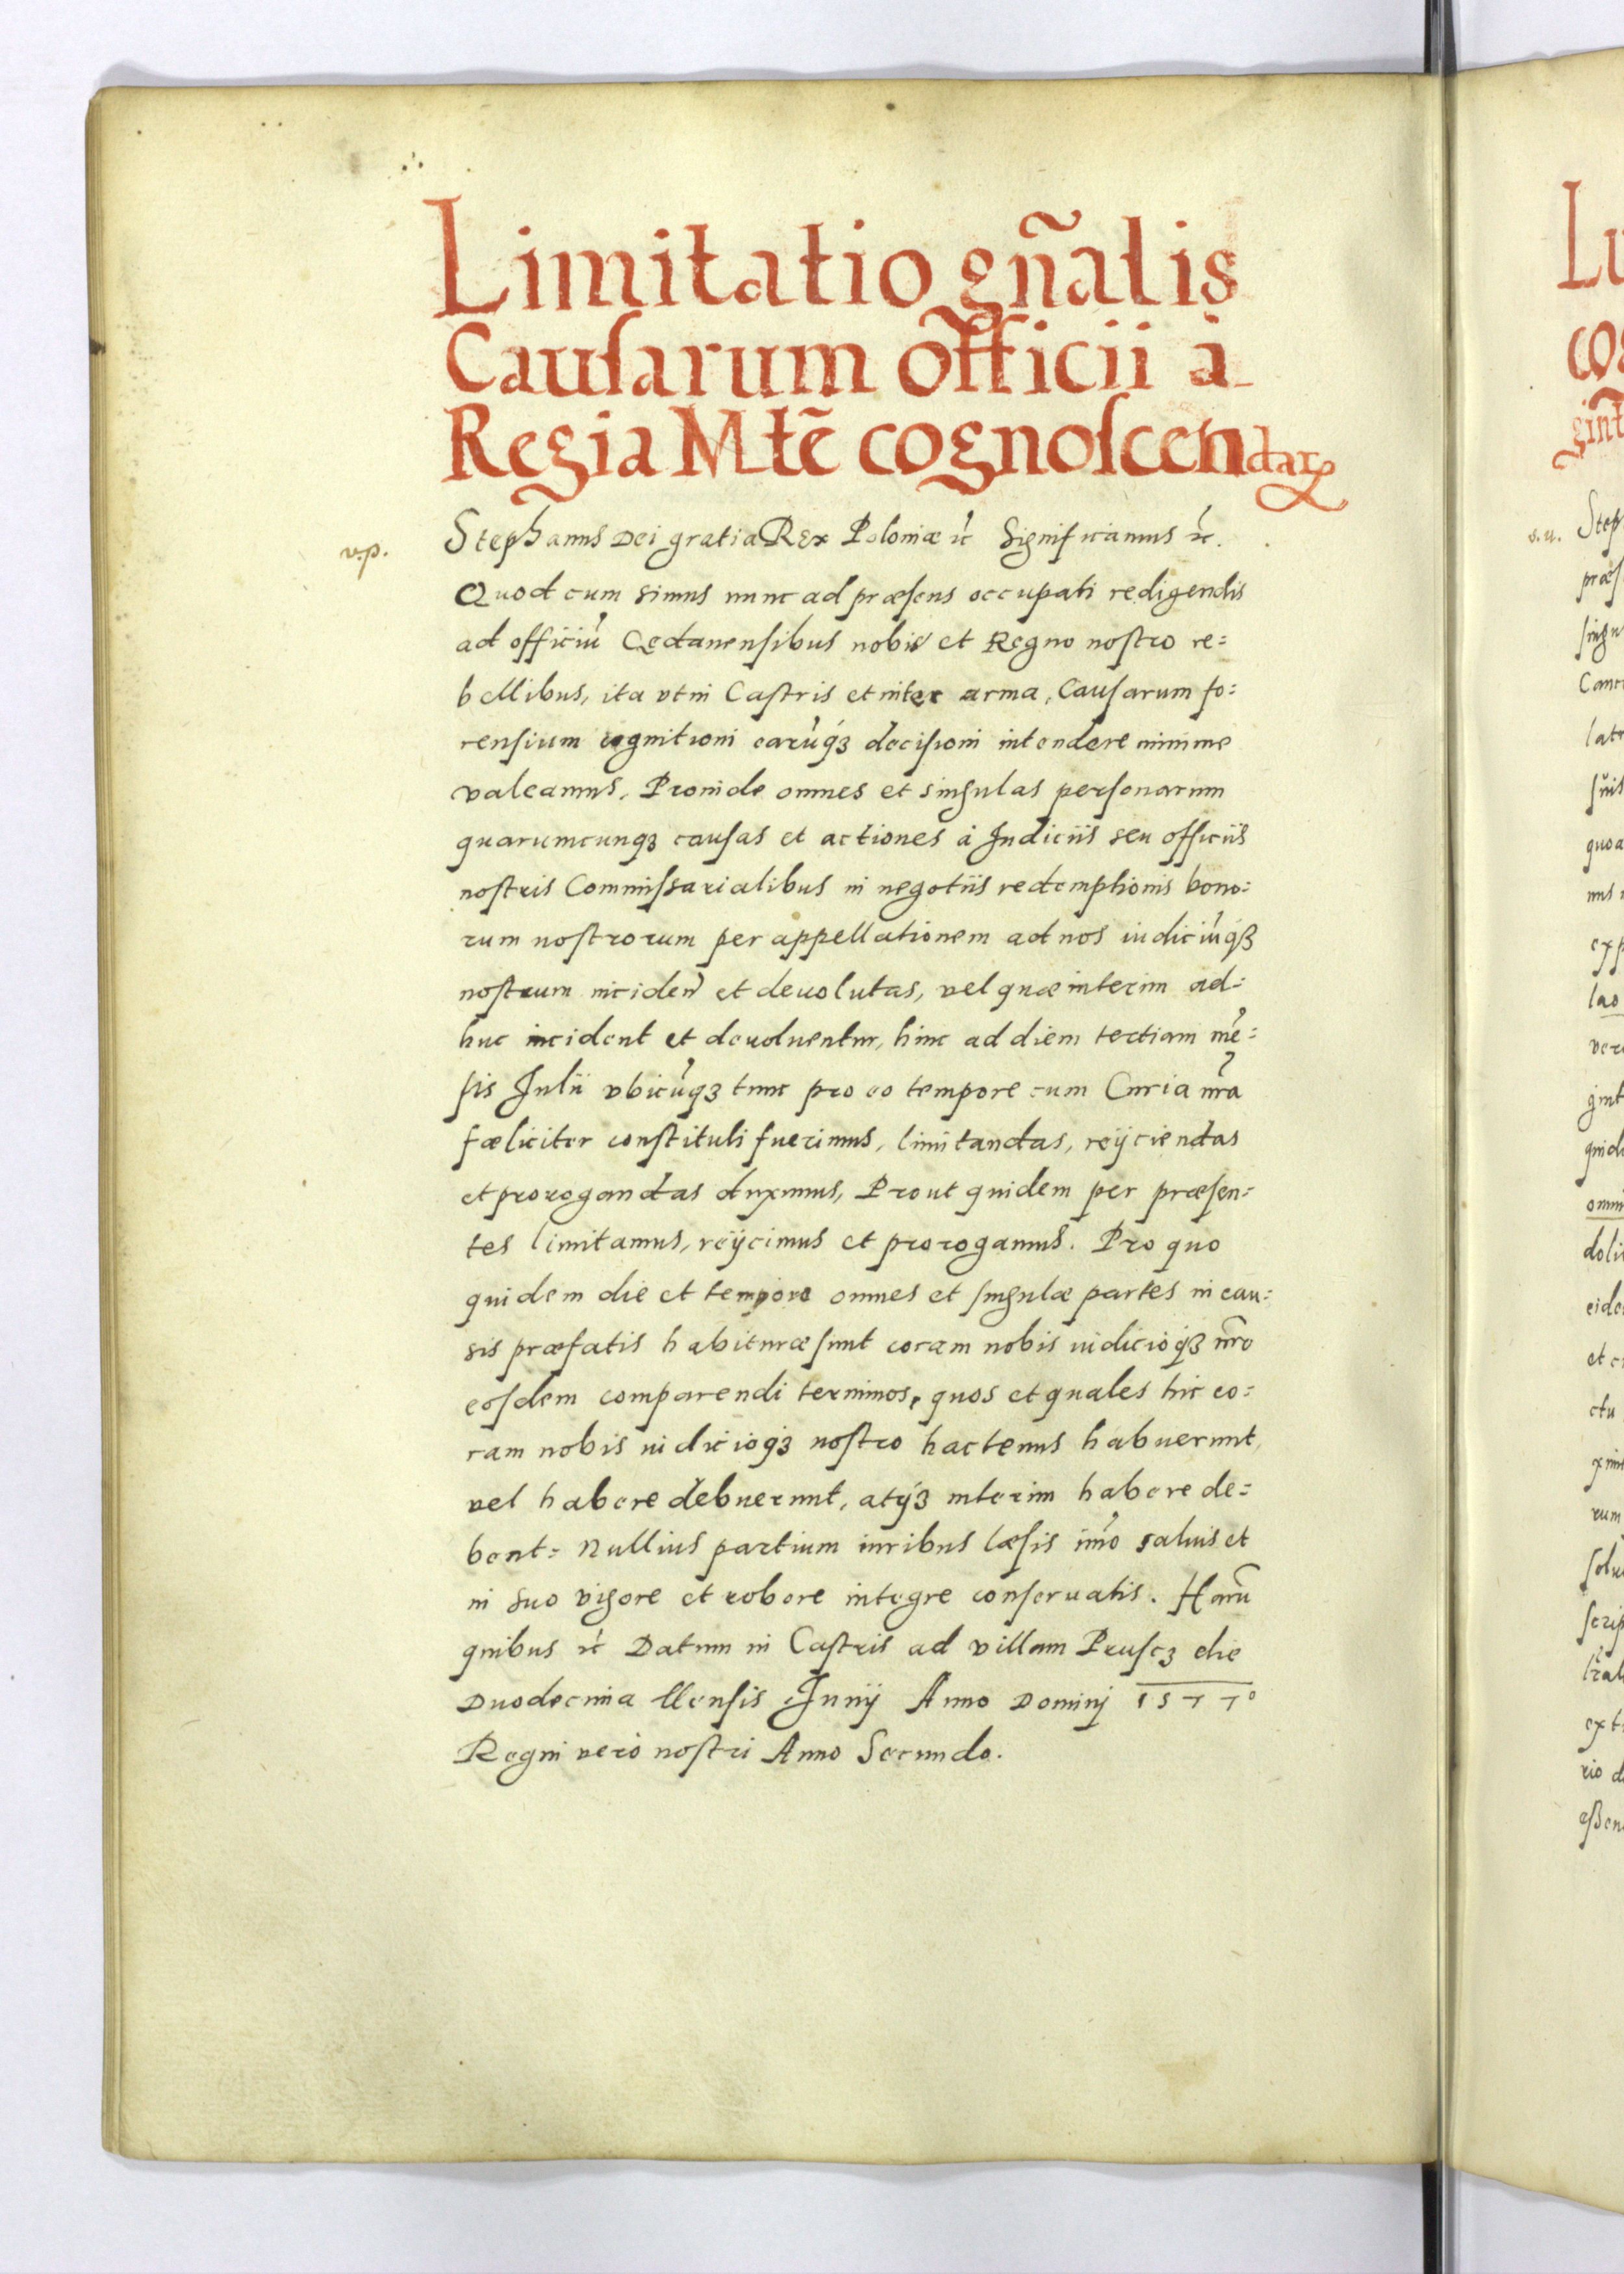 Limitatio gñalis
Causarum officii à
Regia Mtẽ cognoscendarꝝ
v.p.
Stephanus Dei gratia Rex Poloniæ ꝛc̃ Significamus ꝛc̃.
Quod cum simus nunc ad præsens occupati redigendis
ad officiũ Gedanensibus nobis et Regno nostro re=
bellibus, ita vt in Castris et inter arma, Causarum fo=
rensium cognitioni earũqꝫ decisioni intendere minime
valeamus, Proinde omnes et singulas personarum
quarumcunqꝫ causas et actiones à Iudiciis seu officiis
nostris Commissarialibus in negotiis redemptionis bono=
rum nostrorum per appellationem ad nos iudiciũqꝫ
nostrum inciden̄ et deuolutas, vel quæ interim ad=
huc incident et deuoluentur, hinc ad diem tertiam mẽ=
sis Iulii vbicũqꝫ tunc pro eo tempore cum Curia nr̃a
fæliciter constituti fuerimus, limitandas, reijciendas
et prorogandas duximus, Prout quidem per præsen=
tes limitamus, reijcimus et prorogamus. Pro quo
quidem die et tempore omnes et singulæ partes in cau=
sis præfatis habituræ sunt coram nobis iudicioqꝫ nr̃o
eosdem comparendi terminos, quos et quales hic co=
ram nobis iudicioqꝫ nostro hactenus habuerunt,
vel habere debuerunt, atqꝫ interim habere de=
bent= Nullius partium iuribus læsis im̃o saluis et
in suo vigore et robore integre conseruatis. Harũ
quibus ꝛc̃ Datum in Castris ad villam Pruscz die
Duodecima Mensis Iunij Anno Dominj 1577⁰
Regni vero nostri Anno Secundo.